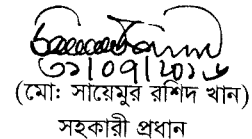 ৩১/০৭/২০১৬
(মো: সায়েমুর রশিদ খান)
সহকারী প্রধান